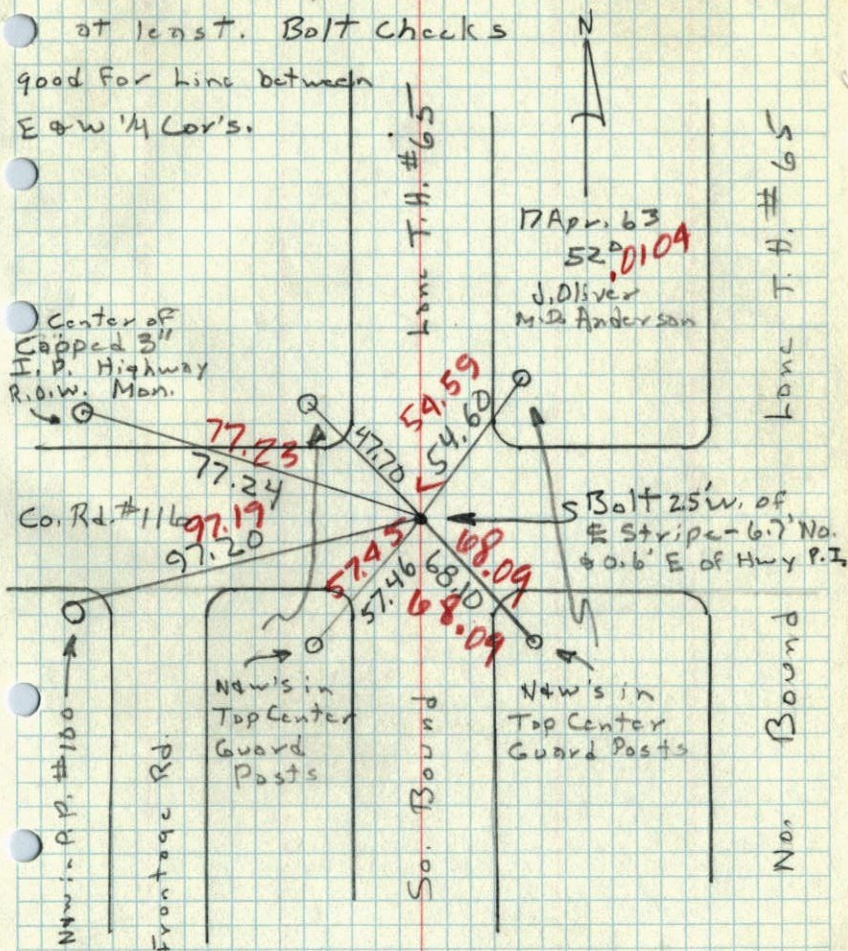 at least. Bolt Checks
good For Line between
E & W 1/4 Cor's.
N
Lane T.H. #65
Lane T.H. #65
17 Apr. 63
52°
.0104
J. Oliver
M.D. Anderson
Center of
Capped 3"
I.P. Highway
R.O.W. Mon.
77.23
77.24
47.70
54.59
54.60
Co. Rd. #116
97.19
97.20
57.45
57.46
68.09
68.10
68.09
Bolt 2.5' W. of
E Stripe - 6.7' No.
& 0.6' E of Hwy P.I.
N&W's in
Top Center
Guard
Posts
N&W's in
Top Center
Guard Posts
N&W in P.P. #180
Frontage Rd.
So. Bound
No. Bound